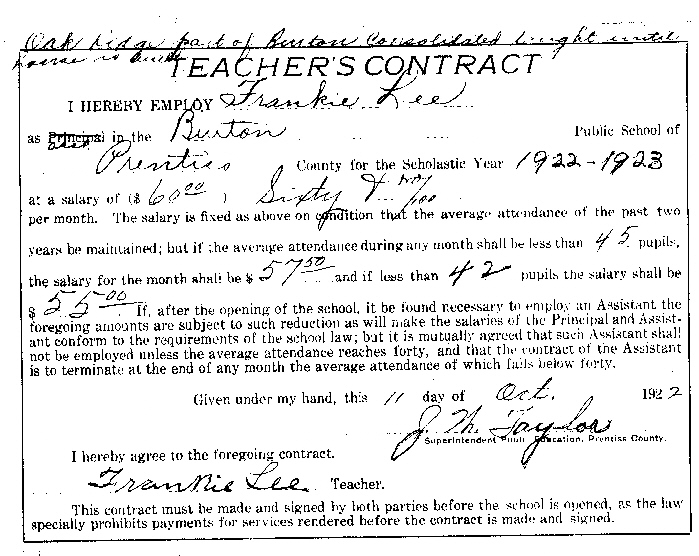 Oak Ridge part of Burton Consolidated taught until
house is built
TEACHER'S CONTRACT
I HEREBY EMPLOY Frankie Lee
as Principal in the Burton Public School of
Prentiss County for the Scholastic Year 1922-1923
at a salary of ($60.00) Sixty & no/100
per month. The salary is fixed as above on condition that the average attendance of the past two
years be maintained; but if the average attendance during any month shall be less than 45 pupils,
the salary for the month shall be $57.50 and if less than 42 pupils the salary shall be
$55.00 If, after the opening of the school, it be found necessary to employ an Assistant the
foregoing amounts are subject to such reduction as will make the salaries of the Principal and Assist-
ant conform to the requirements of the school law; but it is mutually agreed that such Assistant shall
not be employed unless the average attendance reaches forty, and that the contract of the Assistant
is to terminate at the end of any month the average attendance of which falls below forty.
Given under my hand, this 11 day of Oct. 1922
J. M. Taylor
Superintendent Public Education, Prentiss County.
I hereby agree to the foregoing contract.
Frankie Lee Teacher.
This contract must be made and signed by both parties before the school is opened, as the law
specially prohibits payments for services rendered before the contract is made and signed.